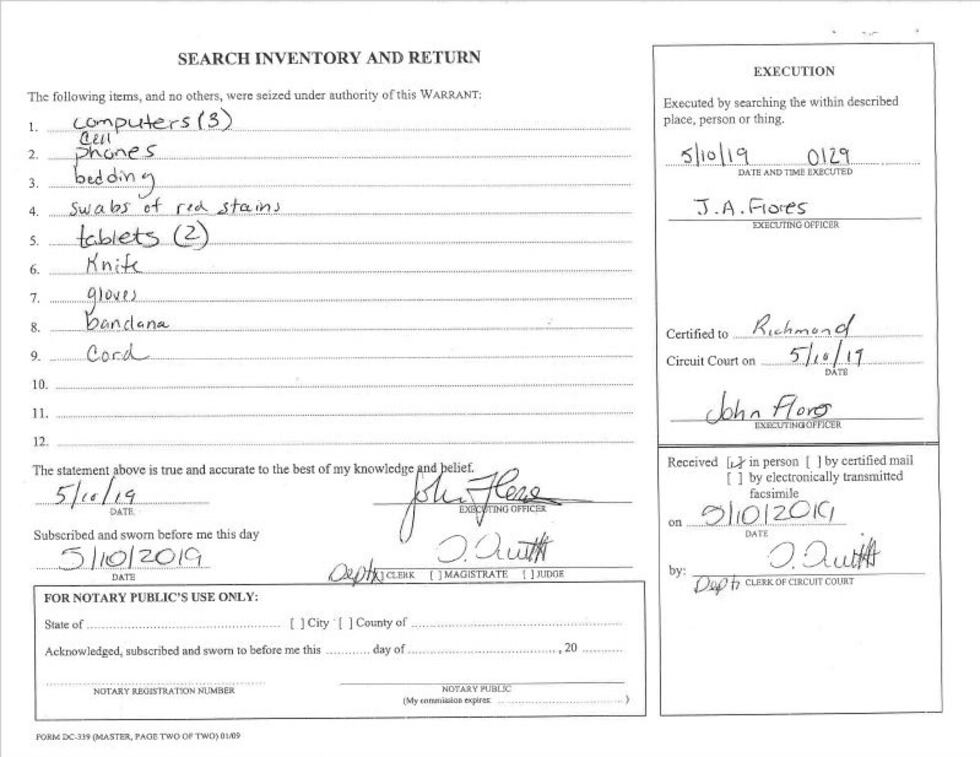 SEARCH INVENTORY AND RETURN
The following items, and no others, were seized under authority of this WARRANT:
1. computers (3)
2. cell phones
3. bedding
4. swabs of red stains
5. tablets (2)
6. Knife
7. gloves
8. bandana
9. Cord
10.
11.
12.
The statement above is true and accurate to the best of my knowledge and belief.
5/10/19 John Flores
DATE EXECUTING OFFICER
Subscribed and sworn before me this day
5/10/2019
DATE Depty [ ] CLERK [ ] MAGISTRATE [ ] JUDGE
FOR NOTARY PUBLIC'S USE ONLY:
State of [ ] City [ ] County of
Acknowledged, subscribed and sworn to before me this day of , 20
NOTARY REGISTRATION NUMBER NOTARY PUBLIC
(My commission expires: )
FORM DC-339 (MASTER, PAGE TWO OF TWO) 01/09
EXECUTION
Executed by searching the within described
place, person or thing.
5/10/19 0129
DATE AND TIME EXECUTED
J.A. Flores
EXECUTING OFFICER
Certified to Richmond
Circuit Court on 5/10/19
DATE
John Flores
EXECUTING OFFICER
Received [✓] in person [ ] by certified mail
[ ] by electronically transmitted
facsimile
on 5/10/2019
DATE
by:
Depty CLERK OF CIRCUIT COURT